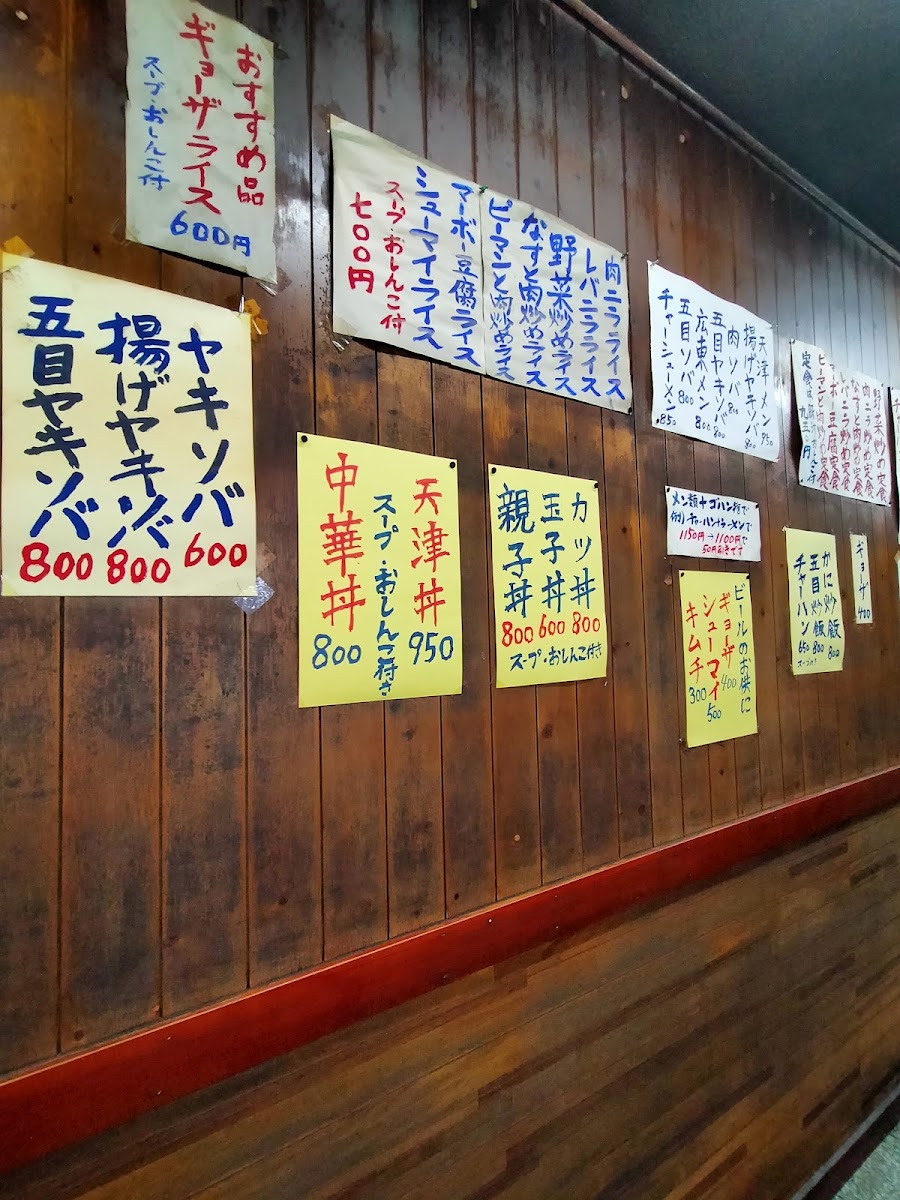 おすすめ品
ギョーザライス
スープ・おしんこ付
600円
ヤキソバ 600
揚げヤキソバ 800
五目ヤキソバ 800
肉ニラライス
レバニラライス
野菜炒めライス
なすと肉炒めライス
ピーマンと肉炒めライス
マーボー豆腐ライス
シューマイライス
スープ・おしんこ付
七〇〇円
天津丼 950
スープ・おしんこ付き
中華丼 800
カツ丼 800
玉子丼 600
親子丼 800
スープ・おしんこ付き
天津メン 950
揚げヤキソバ 800
肉ソバ 800
五目ヤキソバ 800
広東メン 800
五目ソバ 800
チャーシューメン 850
メン類+ゴハン類で
例)チャーハン+ラーメンで
1150円→1100円で
50円引きです
ビールのお供に
ギョーザ 400
シューマイ 500
キムチ 300
野菜炒め定食
肉ニラ炒め定食
なすと肉炒め定食
レバニラ炒め定食
マーボー豆腐定食
ピーマンと肉炒め定食
かに炒飯 800
五目炒飯 800
チャーハン 650
スープ付
ギョーザ 400